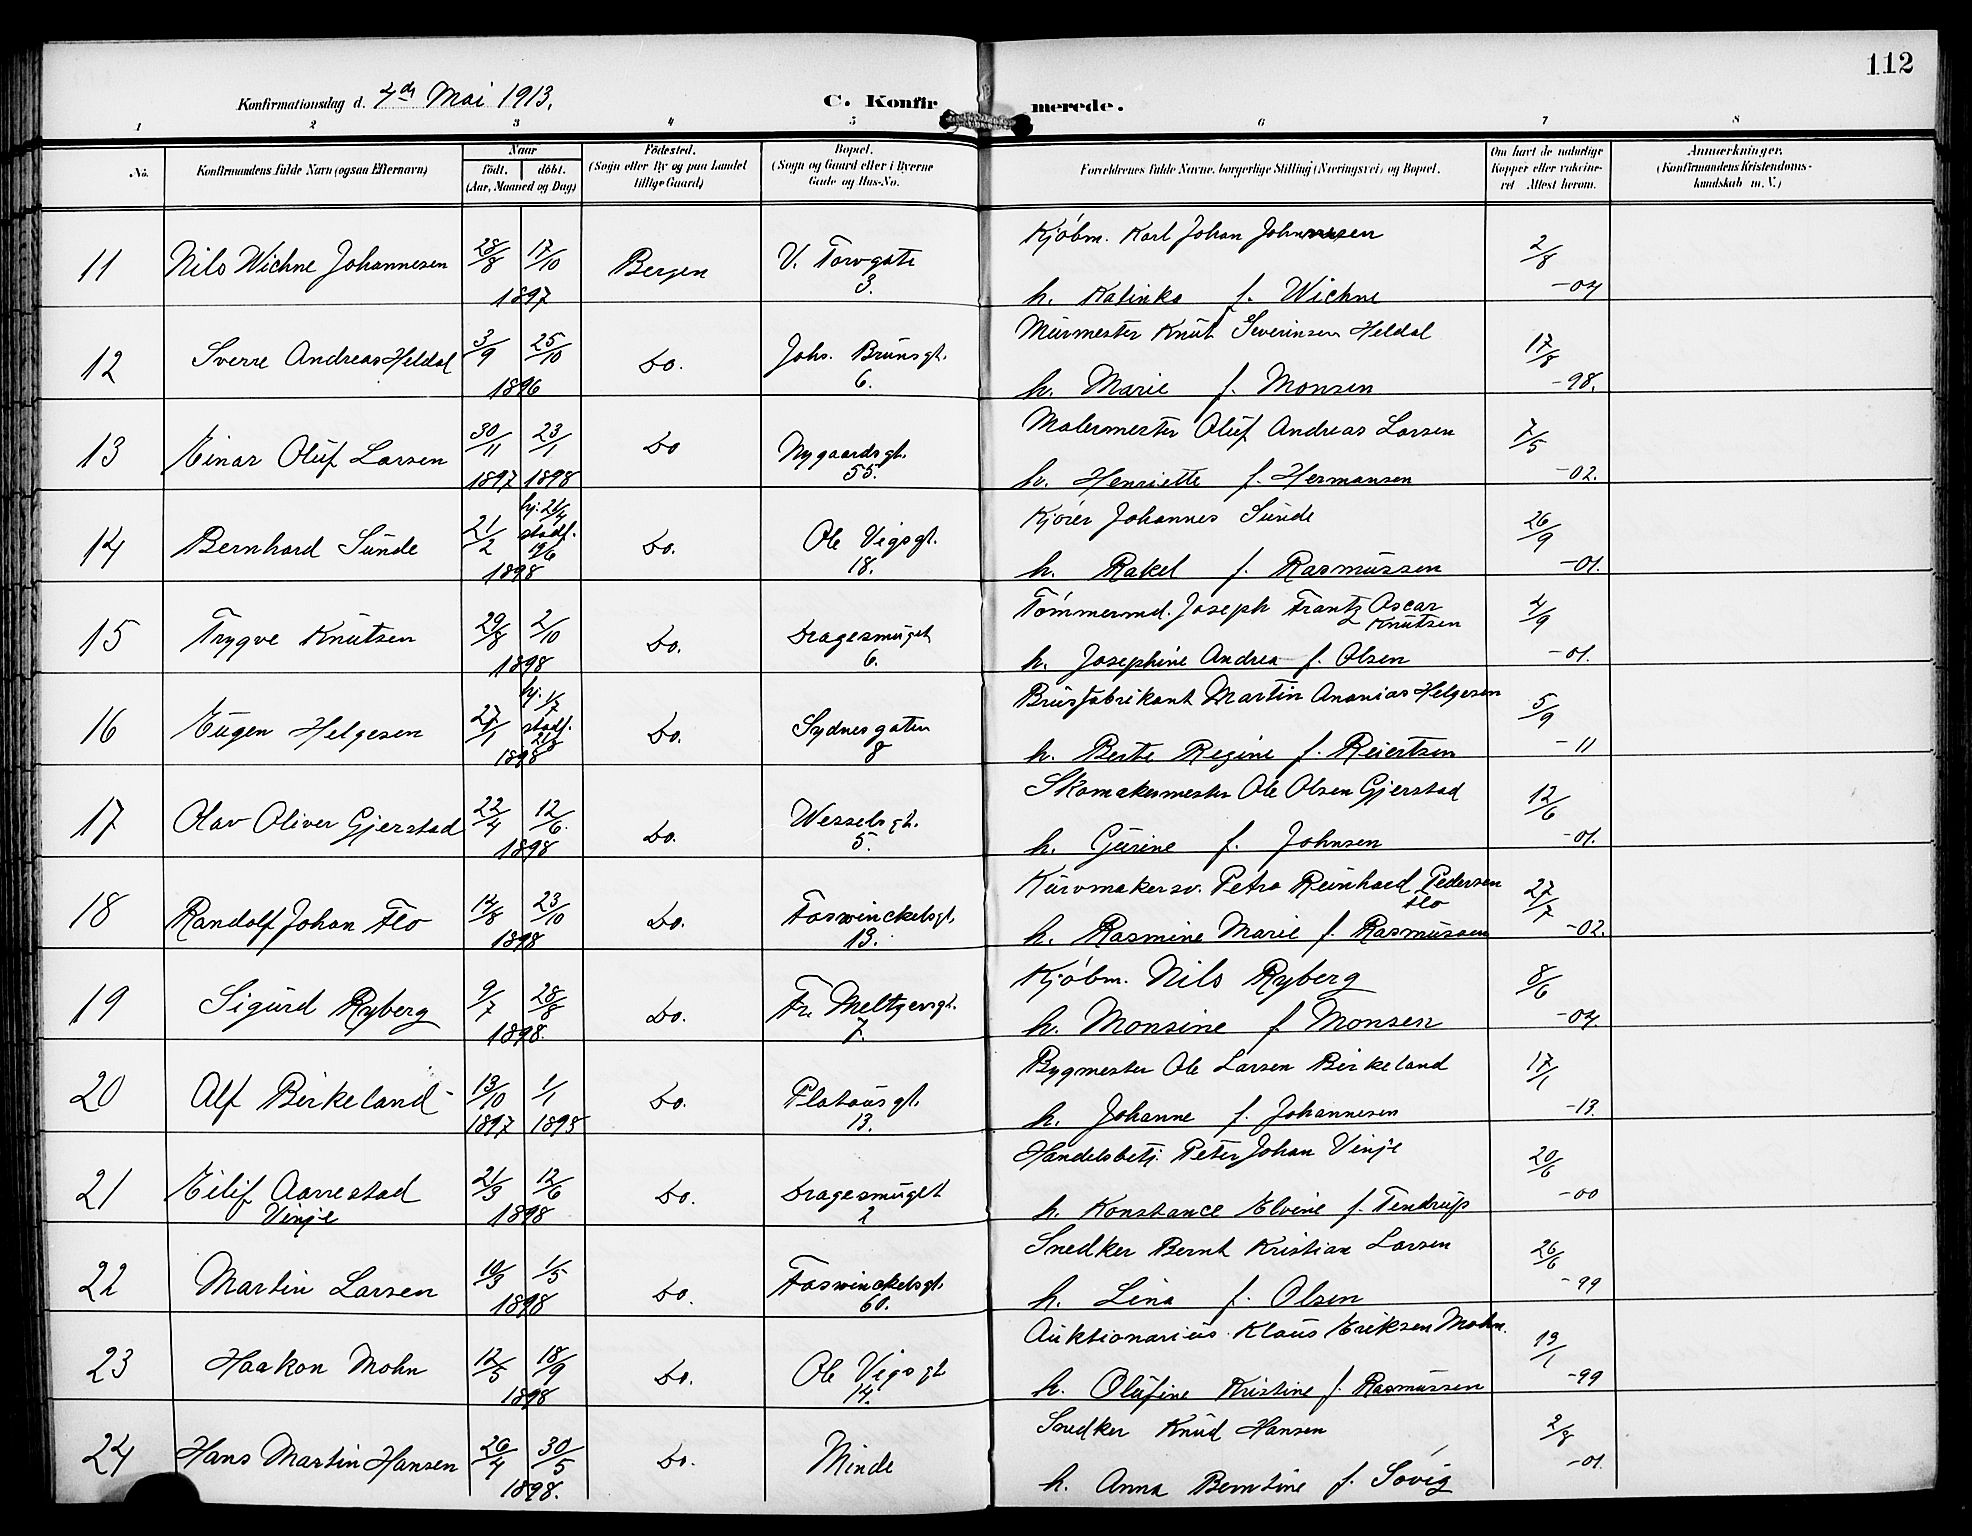 112
Konfirmationsdag d. 4de Mai 1913.
C. Konfirmerede.
1 2 3 4 5 6 7 8
No.
Konfirmandens fulde Navn (ogsaa Efternavn)
Naar
født. døbt.
(Aar, Maaned og Dag)
Fødested.
(Sogn eller By og paa Landet
tillige Gaard)
Bopæl.
(Sogn og Gaard eller i Byerne
Gade og Hus-No.
Forældrenes fulde Navne, borgerlige Stilling (Næringsvei) og Bopæl.
Om havt de naturlige
Kopper eller vakcine-
ret Attest herom.
Anmærkninger.
(Konfirmandens Kristendoms-
kundskab m. V.)
11 Nils Wichne Johannesen 28/8 17/10 1897 Bergen V. Torvgate 3.
Kjøbm. Karl Johan Johannesen 2/8
h. Katinka f. Wichne -04
12 Sverre Andreas Heldal 3/9 25/10 1896 Do. Johs. Brunsgt. 6.
Murmester Knut Severinsen Heldal 17/8
h. Marie f. Monsen -98.
13 Einar Oluf Larsen 30/11 1897 23/1 1898 Do Nygaardsgt. 55.
Malermester Oluf Andreas Larsen 7/5
h. Henriette f. Hermansen -02.
14 Bernhard Sunde 21/2 hj. 21/4 stadf. 19/6 1898 Do. Ole Vigsgt. 18.
Kjører Johannes Sunde 26/9
h. Rakel f. Rasmussen -01.
15 Trygve Knutsen 29/8 2/10 1898 Do. Dragesmuget 6.
Tømmermd. Joseph Frantz Oscar Knutsen 4/9
h. Josephine Andrea f. Olsen -01.
16 Eugen Helgesen 27/1 hj. 1/7 stadf. 21/8 1898 Do. Sydnesgaten 8
Brusfabrikant Martin Ananias Helgesen 5/9
h. Berte Regine f. Reiertsen -11
17 Olav Oliver Gjerstad 22/4 12/6. 1898 Do. Wesselsgt. 5.
Skomakermester Ole Olsen Gjerstad 12/6
h. Gurine f. Johnsen -01.
18 Randolf Johan Flo 14/8 23/10 1898 Do. Foswinckelsgt. 13.
Kurvmakersv. Petro Reinhard Pedersen Flo 27/7
h. Rasmine Marie f. Rasmussen -02.
19 Sigurd Ryberg 9/7 28/8 1898. Do. Fr. Meltzersgt. 7.
Kjøbm. Nils Ryberg 8/6
h. Monsine f Monsen -04.
20 Alf Birkeland 13/10 1897 1/1 1898 Do. Platousgt. 13.
Bygmester Ole Larsen Birkeland 17/1
h. Johanne f. Johannesen -13.
21 Eilif Aarrestad Vinje 21/3 12/6 1898 Do. Dragesmuget 2
Handelsbetj. Peter Johan Vinje 20/6
h. Konstance Elvine f. Tendrup -00
22 Martin Larsen 19/3 1/5 1898 Do. Foswinckelsgt. 60.
Snedker Bernt Kristian Larsen 26/6
h. Lina f. Olsen -99
23 Haakon Mohn 12/5 18/9 1898 Do. Ole Vigsgt 14.
Auktionarius Klaus Eriksen Mohn. 13/1
h. Olufine Kristine f. Rasmussen -99
24 Hans Martin Hansen 26/4 30/5 1898. Do. Minde
Snedker Knud Hansen 2/8
h. Anna Berntine f. Søvig -01.